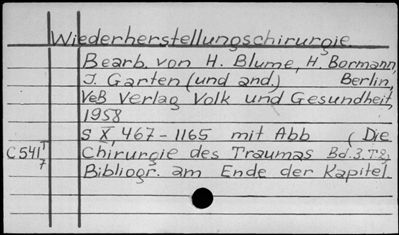 Wiederherstellungschirurgie
Bearb. von H. Blume, H. Bormann,
J. Garten (und and.) Berlin,
VeB Verlag Volk und Gesundheit,
1958
S X, 467-1165 mit Abb (Die
C541 T/7 Chirurgie des Traumas Bd.3.T2)
Bibliogr. am Ende der Kapitel.